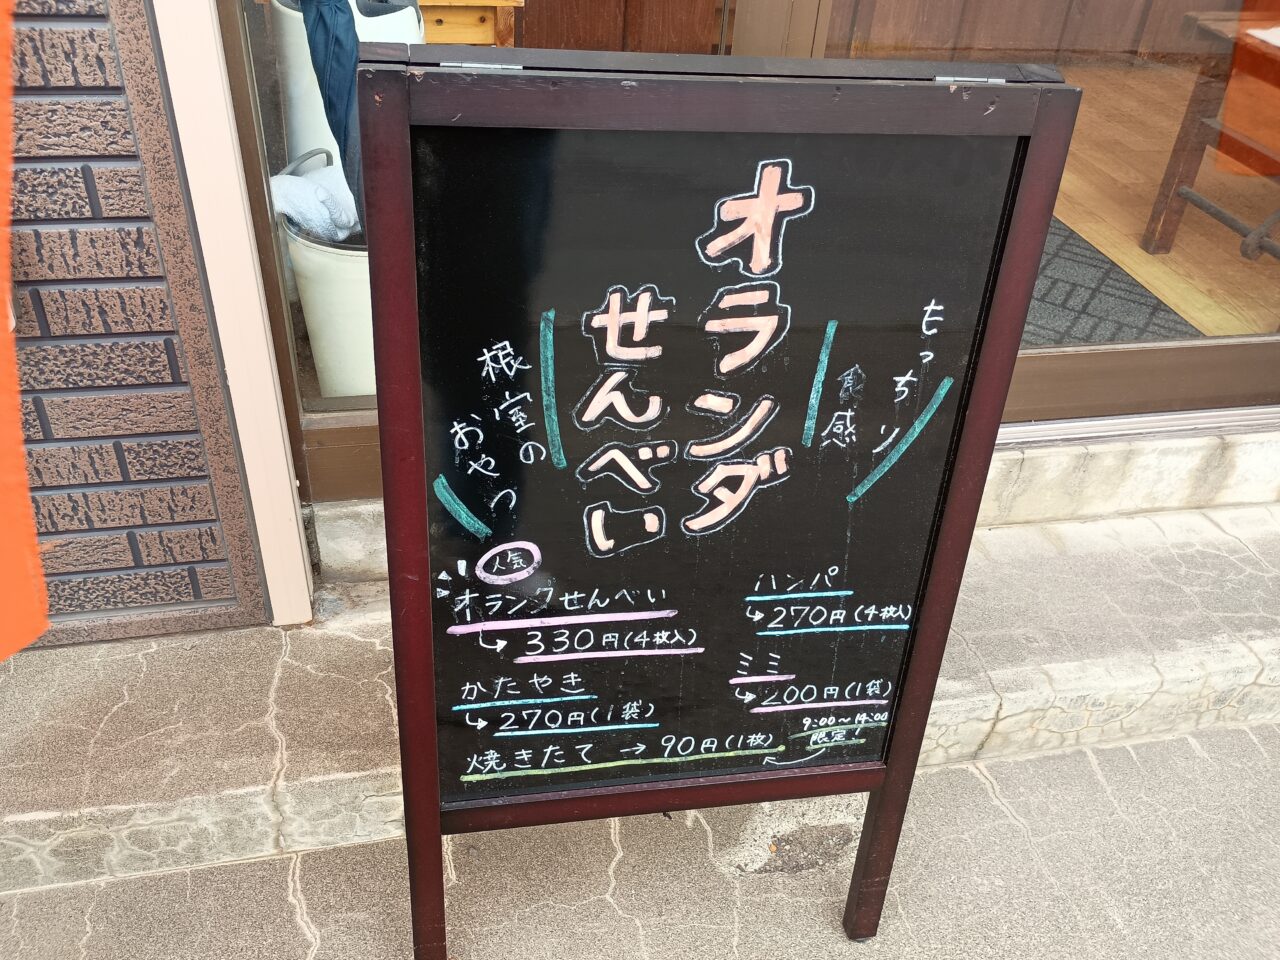 もっちり
食感
オランダ
せんべい
根室の
おやつ
人気
オランダせんべい
↳ 330円(4枚入)
かたやき
↳ 270円(1袋)
焼きたて → 90円(1枚)
ハンパ
↳ 270円(4枚入)
ミミ
↳ 200円(1袋)
9:00〜14:00
限定!